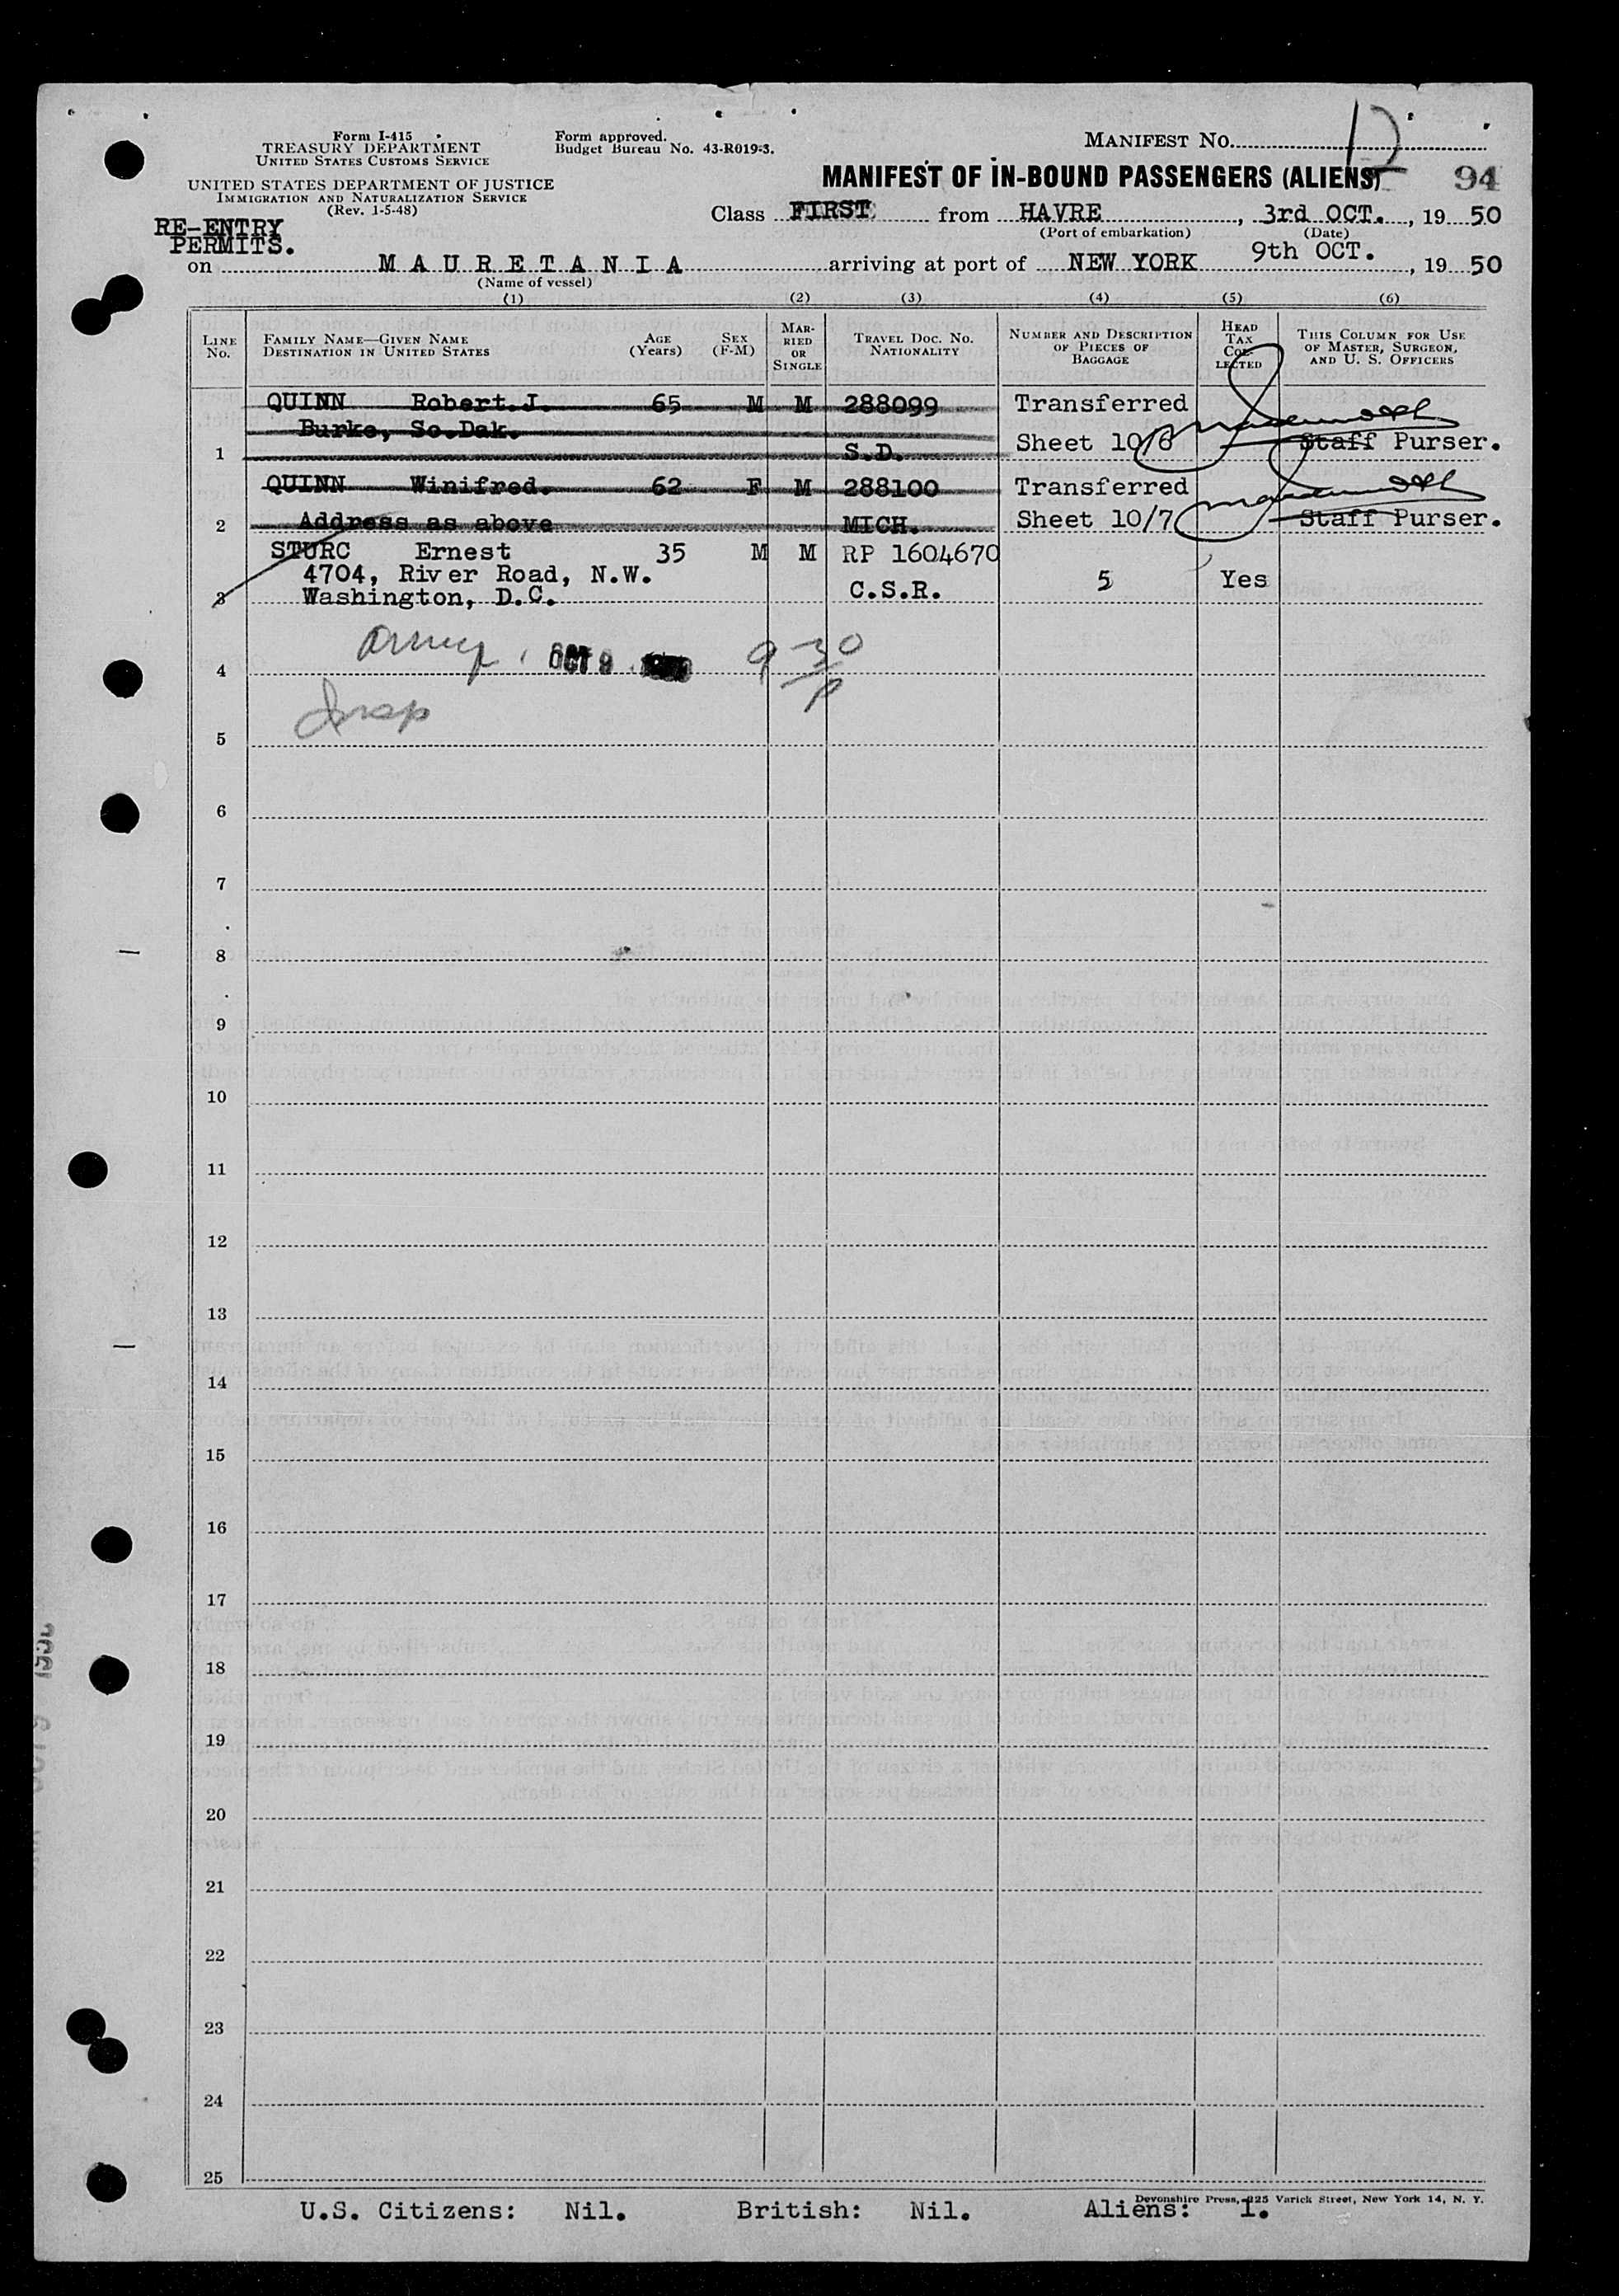 Form I-415
TREASURY DEPARTMENT
UNITED STATES CUSTOMS SERVICE
UNITED STATES DEPARTMENT OF JUSTICE
IMMIGRATION AND NATURALIZATION SERVICE
(Rev. 1-5-48)
Form approved.
Budget Bureau No. 43-R019-3.
MANIFEST NO.
MANIFEST OF IN-BOUND PASSENGERS (ALIENS) 94
RE-ENTRY
PERMITS.
Class FIRST from HAVRE, 3rd OCT., 19 50
(Port of embarkation) (Date)
on MAURETANIA arriving at port of NEW YORK 9th OCT., 19 50
(Name of vessel)
(1) (2) (3) (4) (5) (6)
LINE No.
FAMILY NAME—GIVEN NAME
DESTINATION IN UNITED STATES
AGE (Years)
SEX (F-M)
MARRIED OR SINGLE
TRAVEL DOC. NO.
NATIONALITY
NUMBER AND DESCRIPTION OF PIECES OF BAGGAGE
HEAD TAX COLLECTED
THIS COLUMN FOR USE OF MASTER, SURGEON, AND U. S. OFFICERS
QUINN Robert.J. 65 M M 288099 Transferred
Burke, So.Dak.
1 S.D. Sheet 10/6 Staff Purser.
QUINN Winifred. 62 F M 288100 Transferred
2 Address as above MICH. Sheet 10/7 Staff Purser.
STURC Ernest 35 M M RP 1604670
4704, River Road, N.W. 5 Yes
3 Washington, D.C. C.S.R.
4 OCT 9 9 30
5 Insp
6
7
8
9
10
11
12
13
14
15
16
17
18
19
20
21
22
23
24
25
Devonshire Press, 225 Varick Street, New York 14, N. Y.
U.S. Citizens: Nil. British: Nil. Aliens: 1.